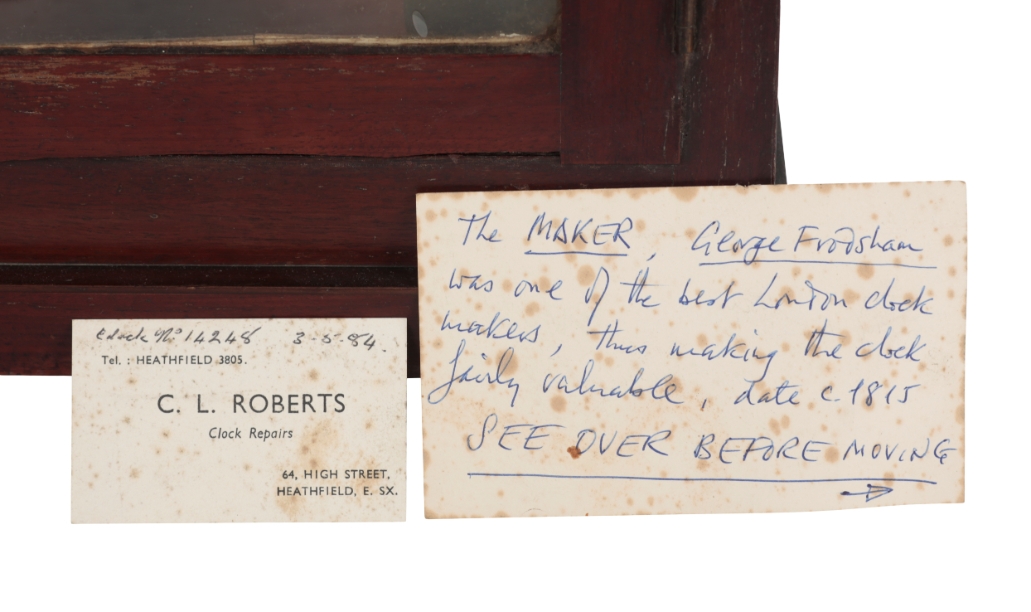 Clock No 14248 3-5-84.
Tel. : HEATHFIELD 3805.
C. L. ROBERTS
Clock Repairs
64, HIGH STREET,
HEATHFIELD, E. SX.
The MAKER, George Frodsham
was one of the best London clock
makers, thus making the clock
fairly valuable, date c. 1815
SEE OVER BEFORE MOVING
→